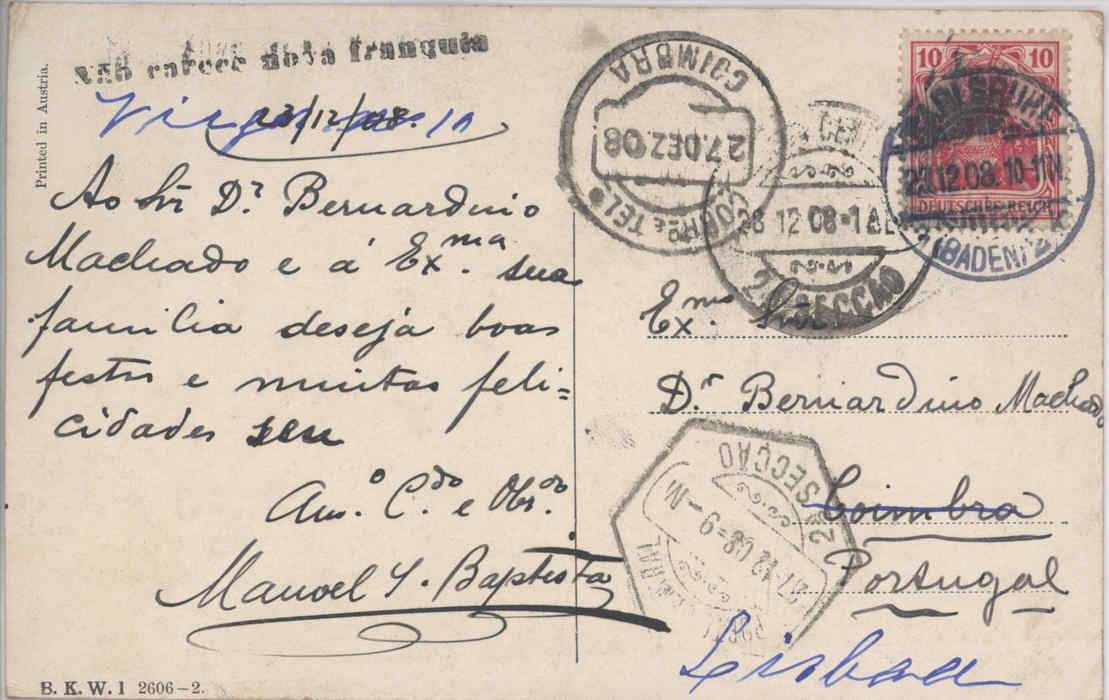 Printed in Austria.
Não carece nova franquia
23/12/08.
Ao Snr Dr Bernardino
Machado e á Exma sua
familia deseja boas
festas e muitas feli=
cidades seu
Amo. Cdo e Obrdo.
Manoel Y. Baptista
B. K. W. I 2606-2.
COIMBRA
27.DEZ.08
CORRO. E TEL.
28 12 08=1
2ª SECÇÃO
10 10
DEUTSCHES REICH
KARLSRUHE
23.12.08.10-11V.
(BADEN) 2
Exmo Snr
Dr. Bernardino Machado
2ª SECÇÃO
27.12.08=9-M
Coimbra
Portugal
Lisboa